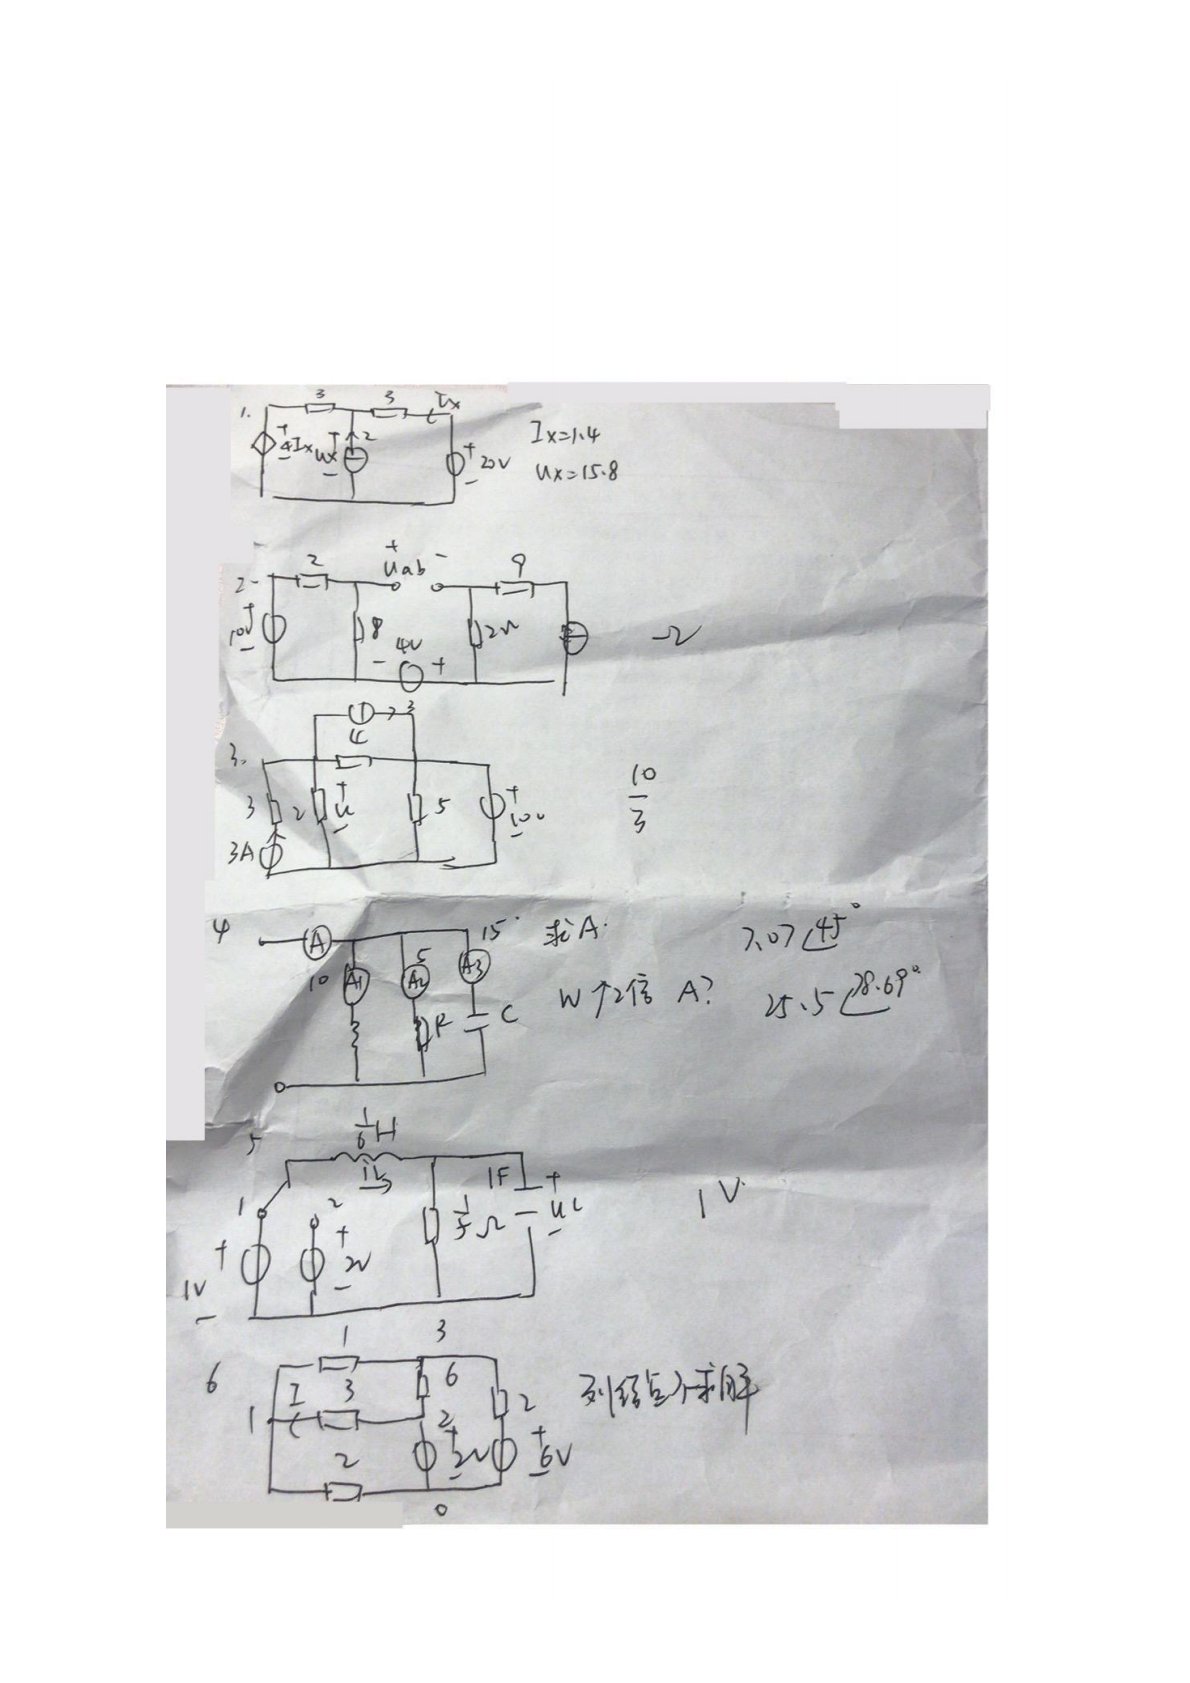 1.
3 3 Ix
+ 4Ix - + Ux - 2 + 20V -
Ix=1.4
Ux=15.8
2.
2 + Uab - 9
+ 10V - 8 - 4V + 2Ω
3.
3
4
3 2 + U - 5 + 10V -
3A
10
3
4
A 15
10 A1 5 A2 A3
R C
求A.
7.07∠45°
W↑2倍 A?
25.5∠78.69°
5
1/6 H
iL
1 2 1/5 Ω 1F + uC -
+ 1V - + 2V -
1V
6
1 3
I 3 6 2
1 2
2 + 2V - + 6V -
0
列结点
求解